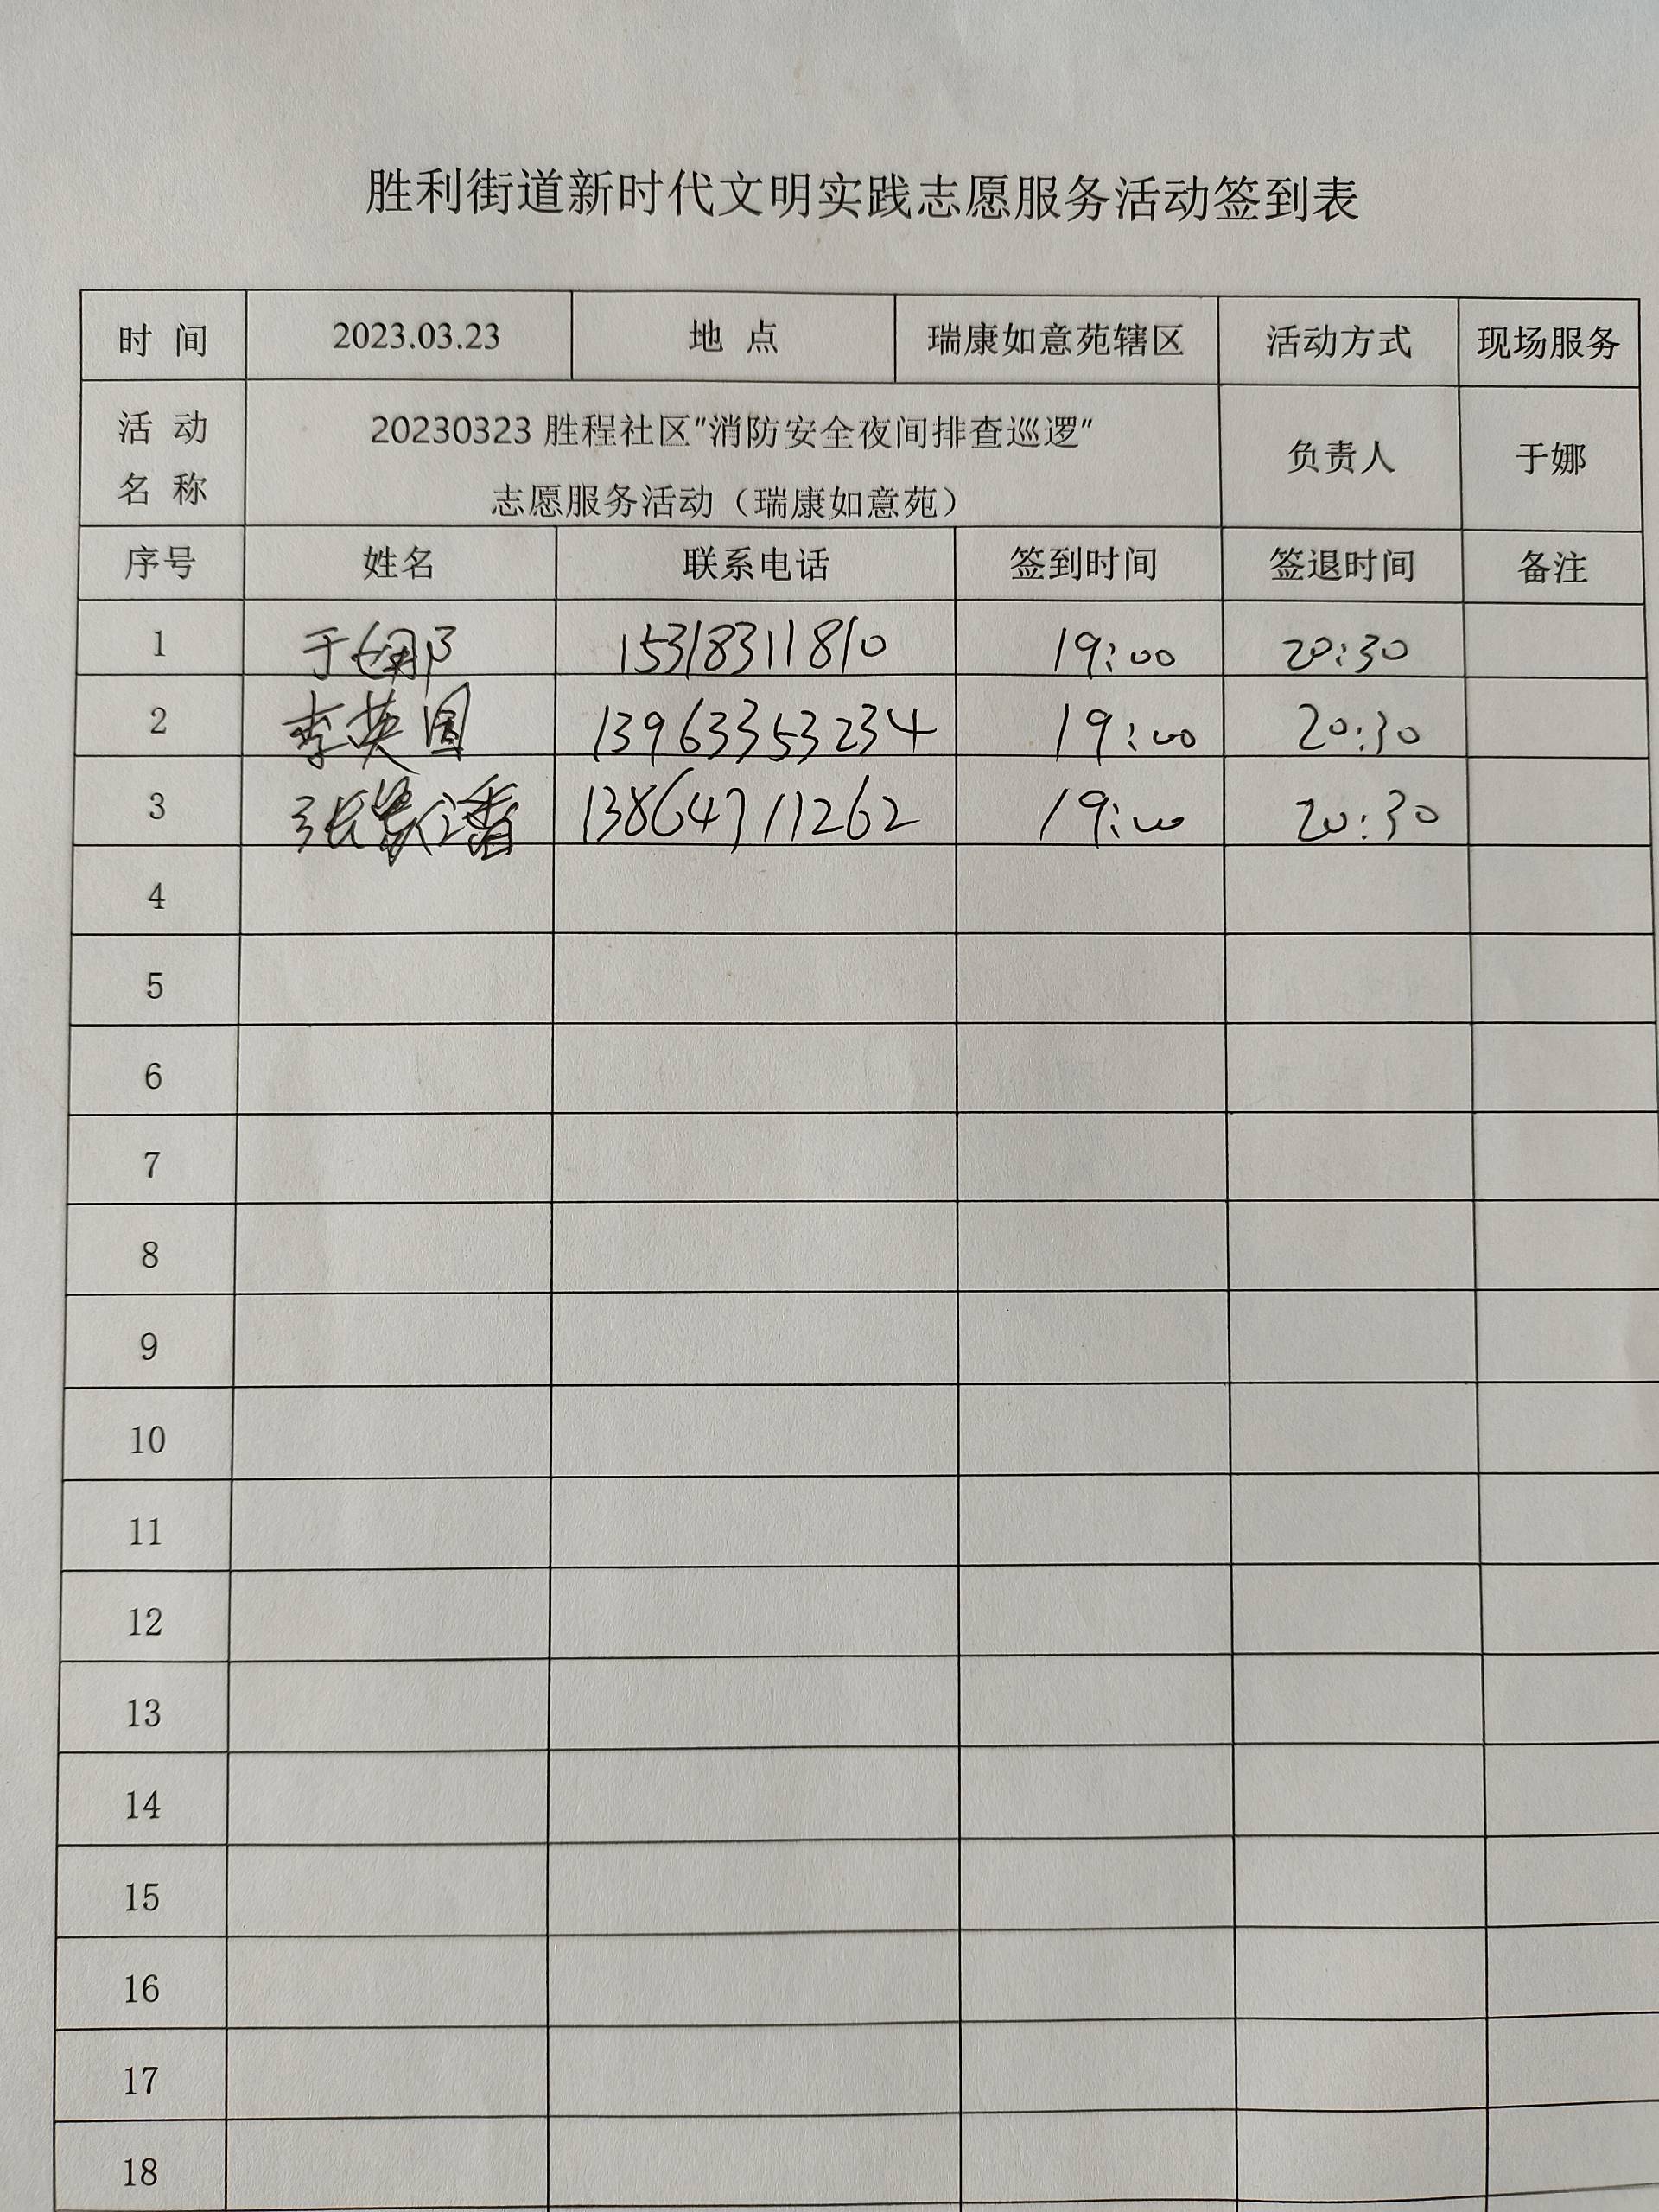 胜利街道新时代文明实践志愿服务活动签到表
时 间 2023.03.23 地 点 瑞康如意苑辖区 活动方式 现场服务
活 动 名 称 20230323 胜程社区“消防安全夜间排查巡逻” 负责人 于娜
志愿服务活动（瑞康如意苑）
序号 姓名 联系电话 签到时间 签退时间 备注
1 于娜 15318311810 19:00 20:30
2 李英国 13963353234 19:00 20:30
3 张 13864711262 19:00 20:30
4
5
6
7
8
9
10
11
12
13
14
15
16
17
18